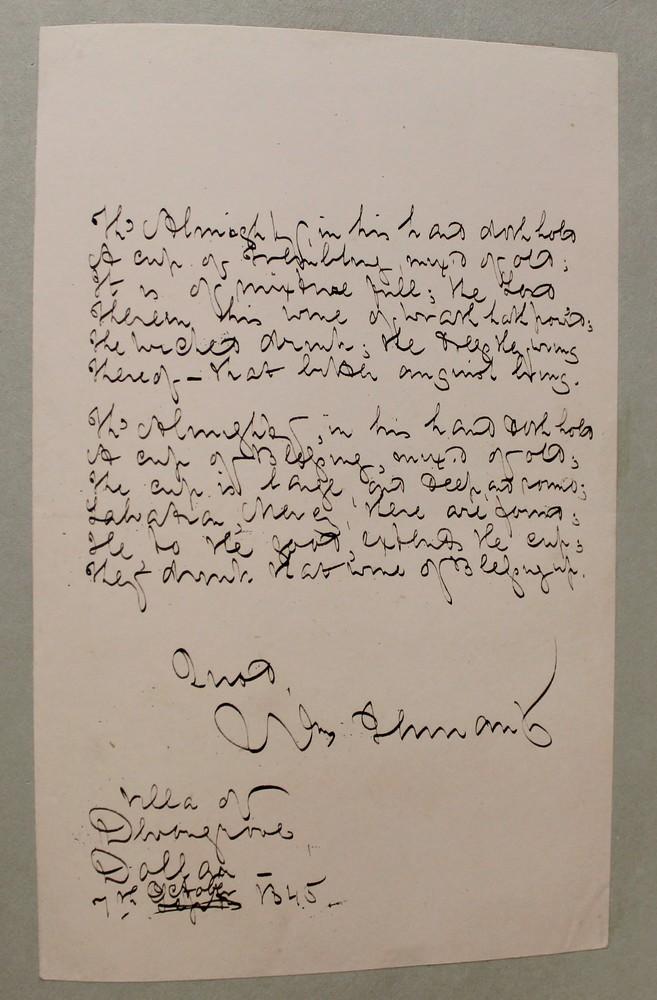 The Almighty, in his hand doth hold
A cup of Trembling, mix'd of old;
It is of mixture full; the Lord
Therein, his wine of wrath hath pour'd;
The wicked drink; the dregs they wring
Thereof – that bitter anguish bring.
The Almighty, in his hand doth hold
A cup of Blessing, mix'd of old;
The cup is large, and deep, and round;
Mercy, there are found;
He to the good, extends the cup;
They drink that wine of Blessing up.
Quod,
Wm
Villa of
Dollar
7th October 1845.